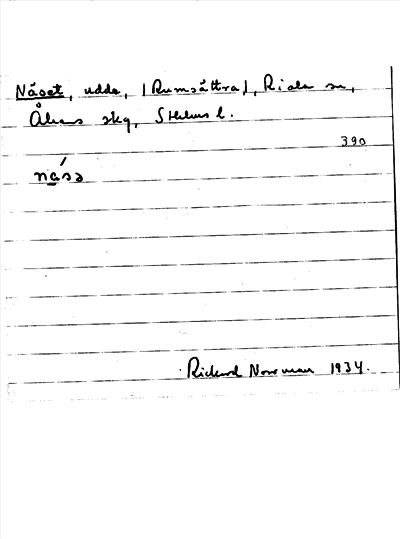 Näset, udde, (Rumsättra), Riala sn,
Åkers skg, Sthlms l.
390
nǽsə
Rickard Norrman 1934.